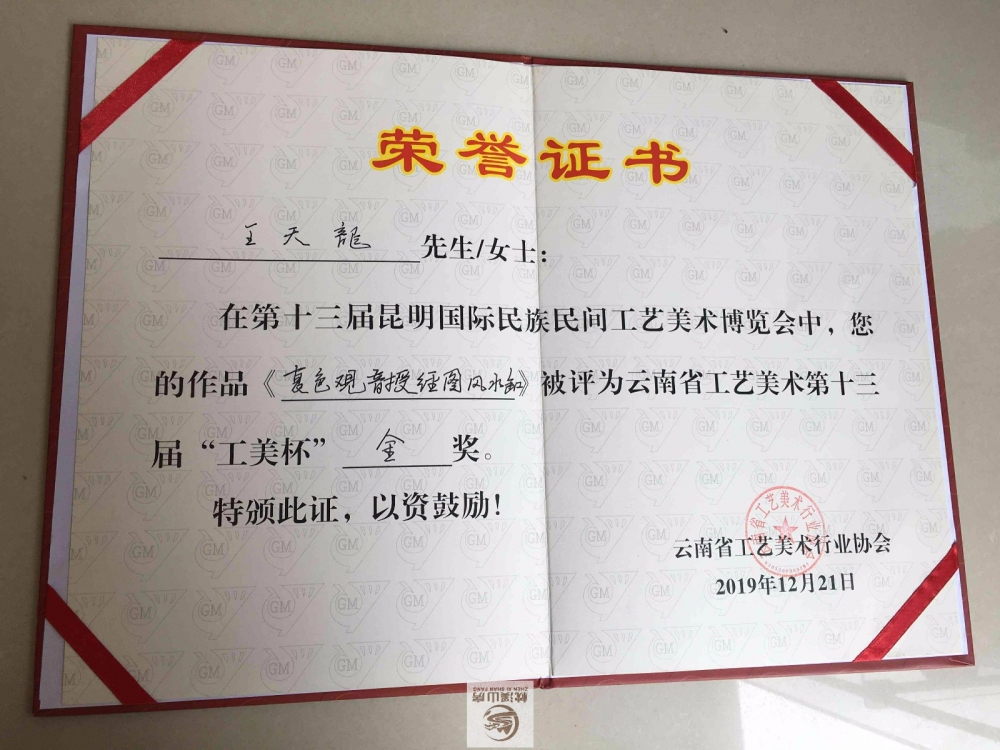 荣誉证书
王天龍 先生/女士：
在第十三届昆明国际民族民间工艺美术博览会中，您
的作品《复色观音授经图风水轮》被评为云南省工艺美术第十三
届“工美杯” 金 奖。
特颁此证，以资鼓励！
云南省工艺美术行业协会
2019年12月21日
云南省工艺美术行业协会
枕溪山房
ZHEN XI SHAN FANG
GM